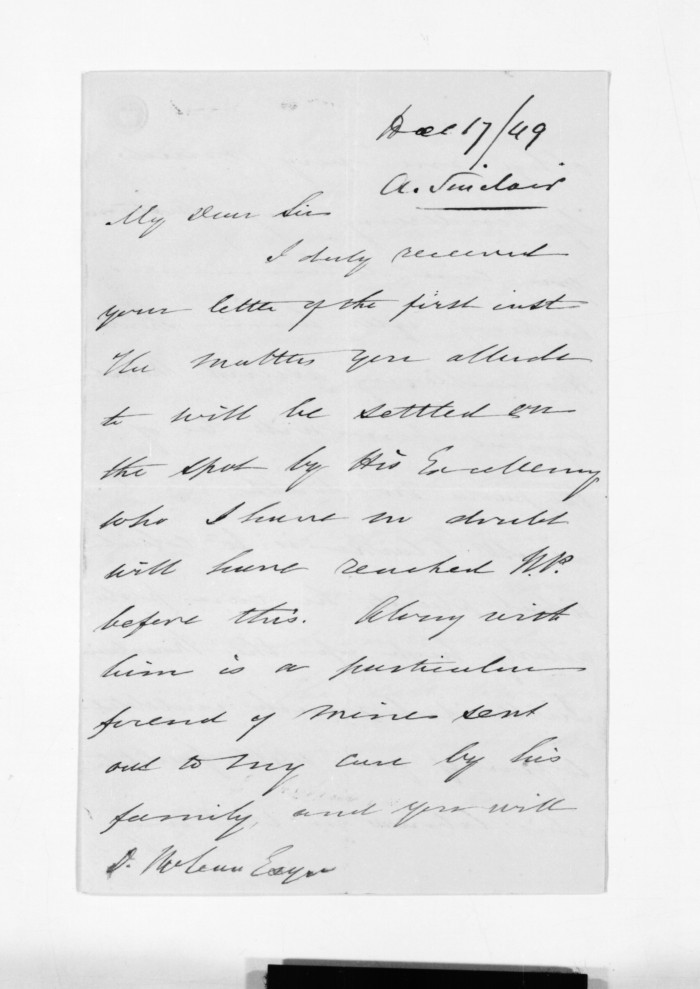 Dec 17/49
A. Sinclair
My Dear Sir
I duly received
your letter of the first inst
The matters you allude
to will be settled on
the spot by His Excellency
who I have no doubt
will have reached N.P.
before this. Along with
him is a particular
friend of mine sent
out to my care by his
family, and you will
D. McLean Esqre